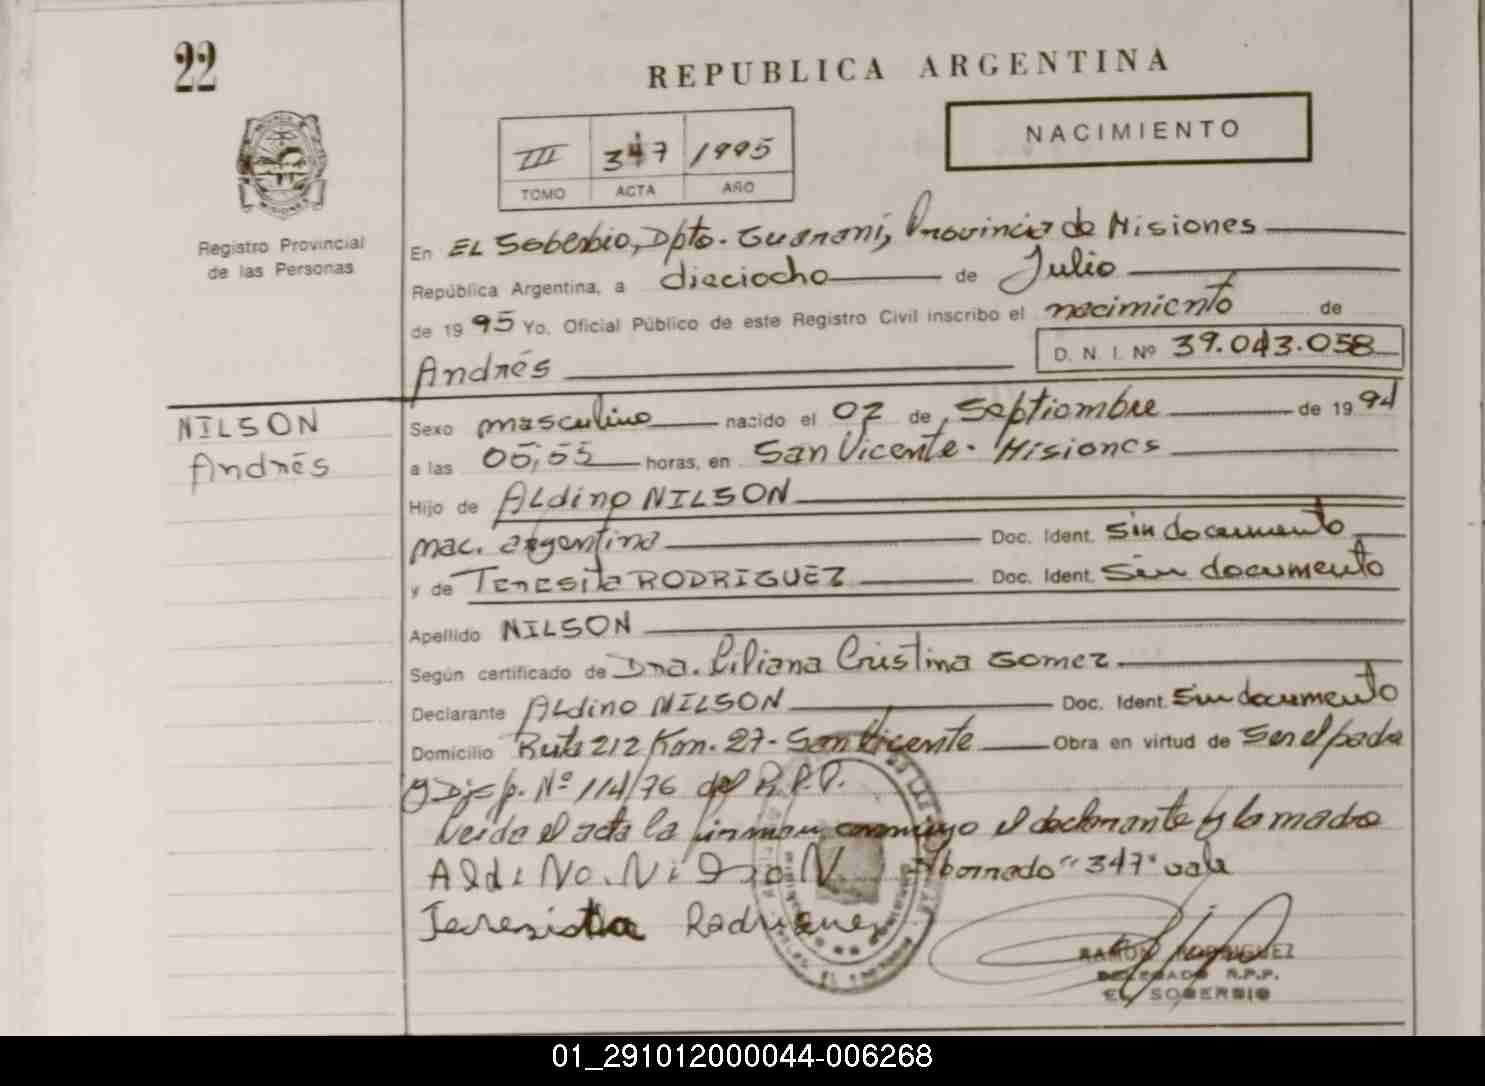 22
REPUBLICA ARGENTINA
NACIMIENTO
III 347 1995
TOMO ACTA AÑO
Registro Provincial
de las Personas
En EL Soberbio, Dpto. Guaraní, Provincia de Misiones
República Argentina, a dieciocho de Julio
de 1995 Yo, Oficial Público de este Registro Civil inscribo el nacimiento de
Andrés
D. N. I. Nº 39.043.058
NILSON
Andrés
Sexo masculino nacido el 02 de Septiembre de 1994
a las 05,55 horas, en San Vicente - Misiones
Hijo de ALdino NILSON
nac. argentina Doc. Ident. Sin documento
y de Teresita RODRIGUEZ Doc. Ident. Sin documento
Apellido NILSON
Según certificado de Dra. Liliana Cristina Gomez
Declarante ALdino NILSON Doc. Ident. Sin documento
Domicilio Ruta 212 Km. 27 - San Vicente Obra en virtud de Ser el padre
y Disp. Nº 114/76 del R.P.P.
Leida el acta la firman conmigo el declarante y la madre
AldiNo. NilsoN Aborrado "347" vale
Teresista Radriguez
RAMON RODRIGUEZ
DELEGADO R.P.P.
EL SOBERBIO
01_291012000044-006268